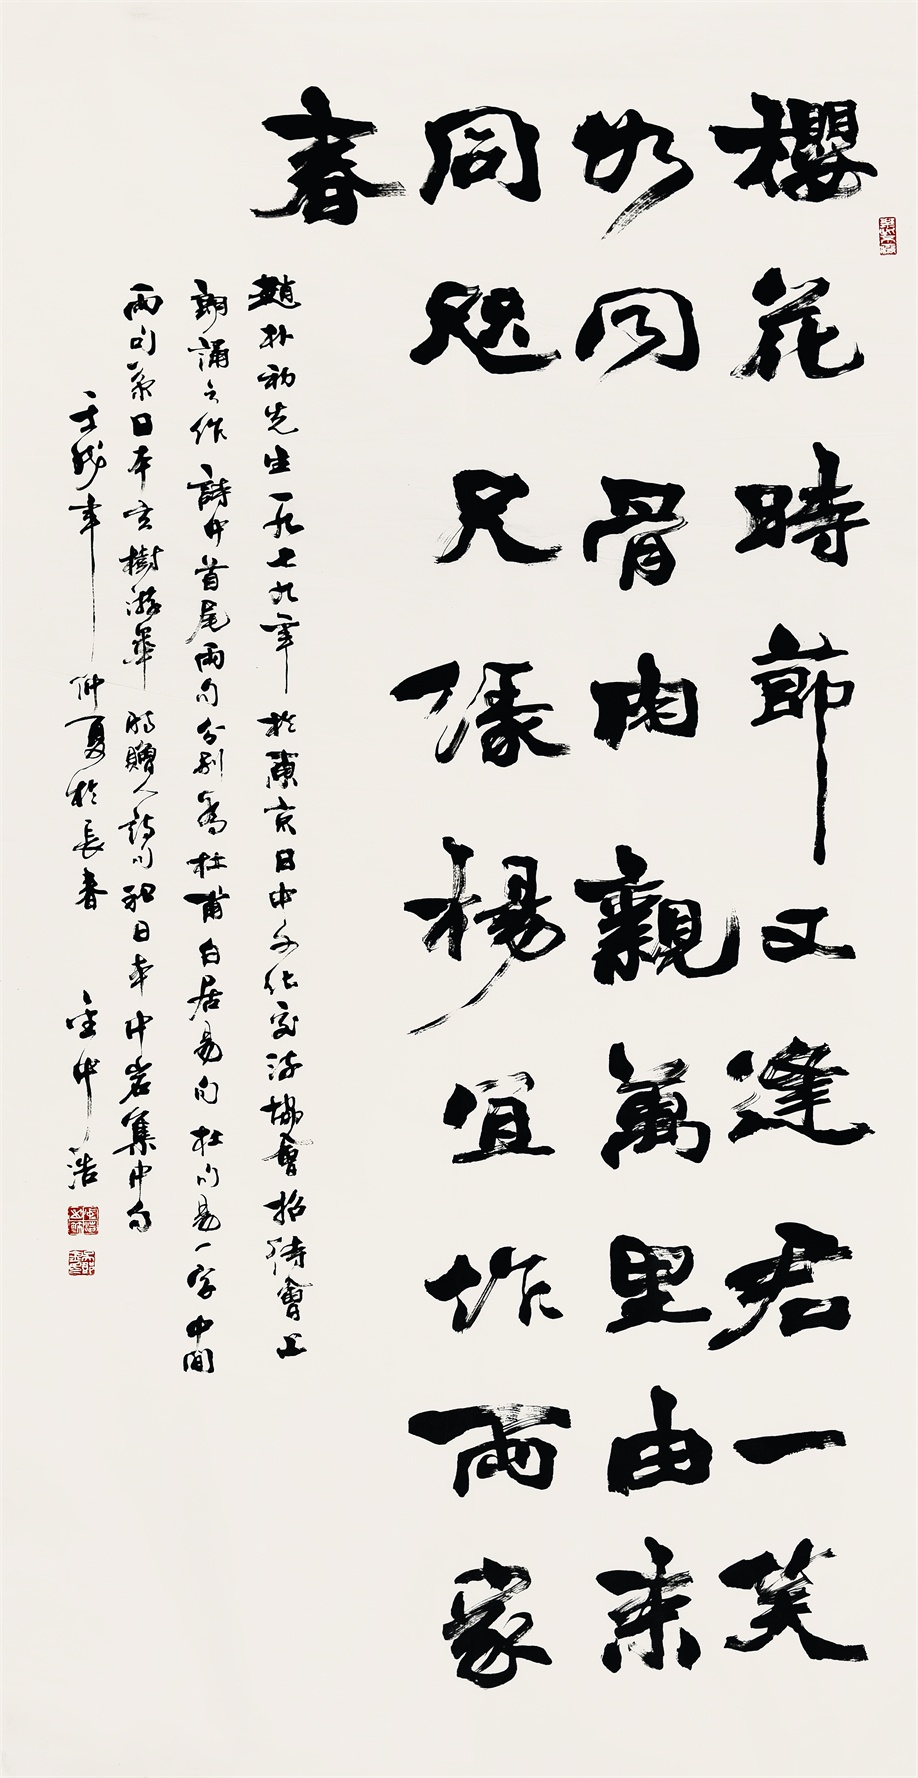 櫻花時節又逢君一笑
如同骨肉親萬里由来
同咫尺綠楊宜作兩家
春
趙朴初先生一九七九年於東京日中文化交流協會招待會上
朗誦之作詩中首尾兩句分別為杜甫白居易句杜句易一字中間
兩句系日本玄樹游華時贈人詩句和日本中岩集中句
壬年仲夏於長春 金中浩